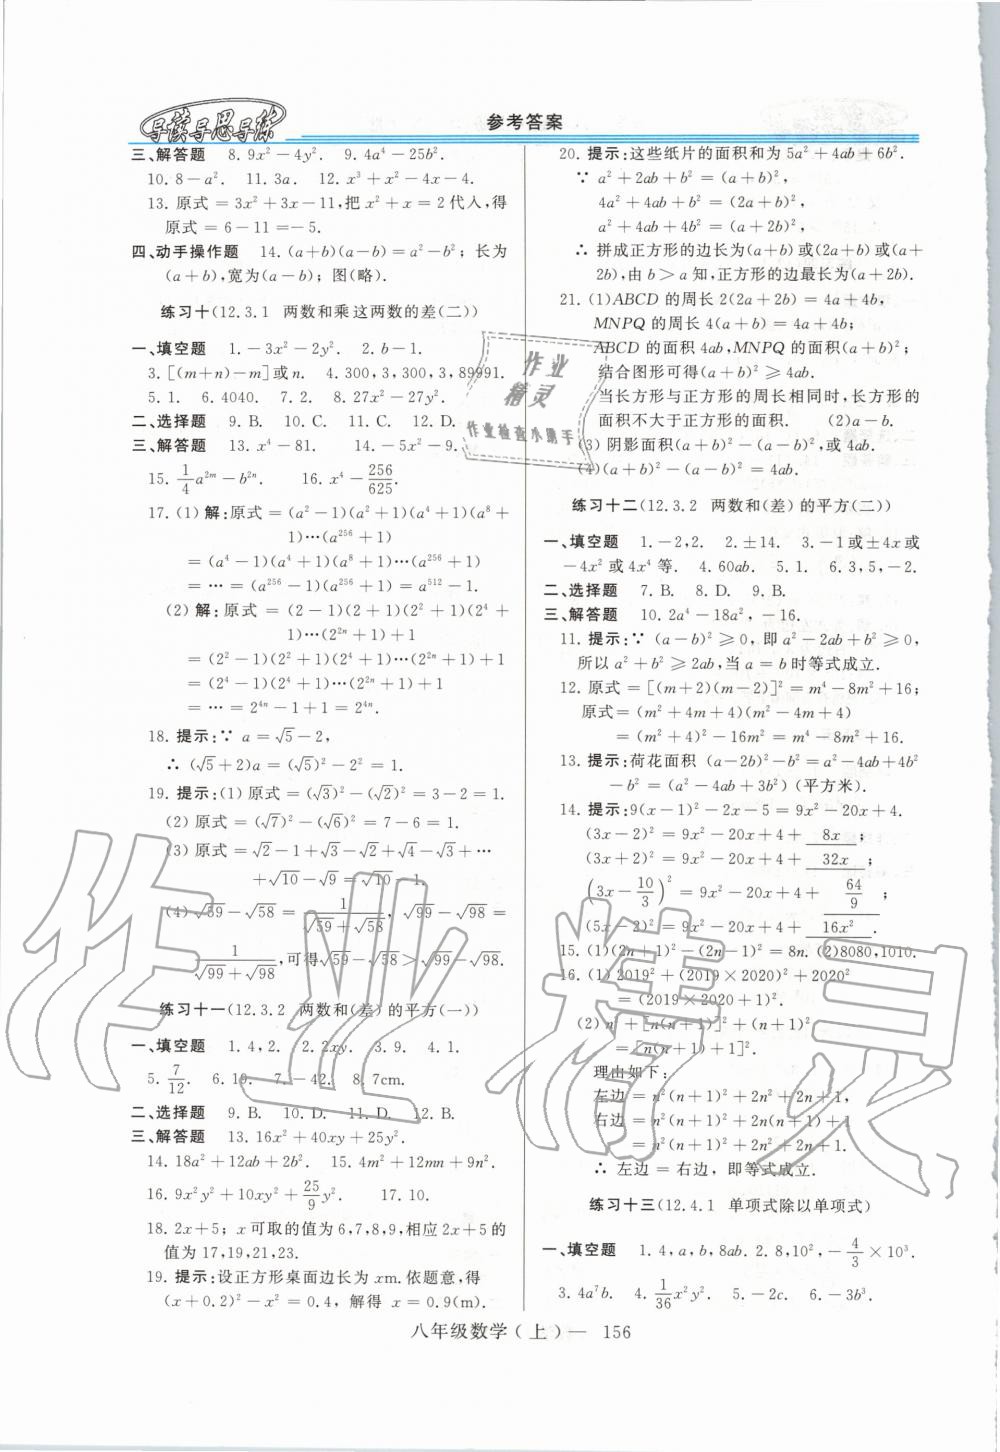 导读导思导练
参考答案
三、解答题 8. 9x²－4y². 9. 4a⁴－25b².
10. 8－a². 11. 3a. 12. x³＋x²－4x－4.
13. 原式＝3x²＋3x－11,把 x²＋x＝2代入,得
原式＝6－11＝－5.
四、动手操作题 14. (a＋b)(a－b)＝a²－b²；长为
(a＋b),宽为(a－b)；图(略).
练习十(12.3.1 两数和乘这两数的差(二))
一、填空题 1. －3x²－2y². 2. b－1.
3. [(m＋n)－m]或n. 4. 300,3,300,3,89991.
5. 1. 6. 4040. 7. 2. 8. 27x²－27y².
二、选择题 9. B. 10. C. 11. C. 12. D.
三、解答题 13. x⁴－81. 14. －5x²－9.
15. 1/4 a²ᵐ－b²ⁿ. 16. x⁴－256/625.
17. (1) 解:原式＝(a²－1)(a²＋1)(a⁴＋1)(a⁸＋
1)…(a²⁵⁶＋1)
＝(a⁴－1)(a⁴＋1)(a⁸＋1)…(a²⁵⁶＋1)
＝…＝(a²⁵⁶－1)(a²⁵⁶＋1)＝a⁵¹²－1.
(2) 解:原式＝(2－1)(2＋1)(2²＋1)(2⁴＋
1)…(2²ⁿ＋1)＋1
＝(2²－1)(2²＋1)(2⁴＋1)…(2²ⁿ＋1)＋1
＝(2⁴－1)(2⁴＋1)…(2²ⁿ＋1)＋1
＝…＝2⁴ⁿ－1＋1＝2⁴ⁿ.
18. 提示:∵ a＝√5－2,
∴ (√5＋2)a＝(√5)²－2²＝1.
19. 提示:(1) 原式＝(√3)²－(√2)²＝3－2＝1.
(2) 原式＝(√7)²－(√6)²＝7－6＝1.
(3) 原式＝√2－1＋√3－√2＋√4－√3＋…
＋√10－√9＝√10－1.
(4) √59－√58＝1/(√59＋√58), √99－√98＝
1/(√99＋√98),可得√59－√58＞√99－√98.
练习十一(12.3.2 两数和(差)的平方(一))
一、填空题 1. 4,2. 2. 2xy. 3. 9. 4. 1.
5. 7/12. 6. 19. 7. －42. 8. 7cm.
二、选择题 9. B. 10. D. 11. D. 12. B.
三、解答题 13. 16x²＋40xy＋25y².
14. 18a²＋12ab＋2b². 15. 4m²＋12mn＋9n².
16. 9x²y²＋10xy²＋25/9 y². 17. 10.
18. 2x＋5；x 可取的值为 6,7,8,9,相应 2x＋5 的
值为 17,19,21,23.
19. 提示:设正方形桌面边长为 xm. 依题意,得
(x＋0.2)²－x²＝0.4, 解得 x＝0.9(m).
20. 提示:这些纸片的面积和为 5a²＋4ab＋6b².
∵ a²＋2ab＋b²＝(a＋b)²,
4a²＋4ab＋b²＝(2a＋b)²,
a²＋4ab＋4b²＝(a＋2b)²,
∴ 拼成正方形的边长为(a＋b)或(2a＋b)或(a＋
2b),由 b＞a 知,正方形的边最长为(a＋2b).
21. (1)ABCD 的周长 2(2a＋2b)＝4a＋4b,
MNPQ 的周长 4(a＋b)＝4a＋4b；
ABCD 的面积 4ab,MNPQ 的面积(a＋b)²；
结合图形可得(a＋b)²≥4ab.
当长方形与正方形的周长相同时,长方形的
面积不大于正方形的面积. (2)a－b.
(3) 阴影面积(a＋b)²－(a－b)²,或 4ab.
(4)(a＋b)²－(a－b)²＝4ab.
练习十二(12.3.2 两数和(差)的平方(二))
一、填空题 1. －2,2. 2. ±14. 3. －1或±4x或
－4x²或4x⁴等. 4. 60ab. 5. 1. 6. 3,5,－2.
二、选择题 7. B. 8. D. 9. B.
三、解答题 10. 2a⁴－18a²,－16.
11. 提示:∵ (a－b)²≥0,即 a²－2ab＋b²≥0,
所以 a²＋b²≥2ab,当 a＝b时等式成立.
12. 原式＝[(m＋2)(m－2)]²＝m⁴－8m²＋16；
原式＝(m²＋4m＋4)(m²－4m＋4)
＝(m²＋4)²－16m²＝m⁴－8m²＋16.
13. 提示:荷花面积 (a－2b)²－b²＝a²－4ab＋4b²
－b²＝(a²－4ab＋3b²)(平方米).
14. 提示:9(x－1)²－2x－5＝9x²－20x＋4.
(3x－2)²＝9x²－20x＋4＋ 8x ；
(3x＋2)²＝9x²－20x＋4＋ 32x ；
(3x－10/3)²＝9x²－20x＋4＋ 64/9 ；
(5x－2)²＝9x²－20x＋4＋ 16x² .
15. (1)(2n＋1)²－(2n－1)²＝8n. (2)8080,1010.
16. (1) 2019²＋(2019×2020)²＋2020²
＝(2019×2020＋1)².
(2) n²＋[n(n＋1)]²＋(n＋1)²
＝[n(n＋1)＋1]².
理由如下:
左边＝n²(n＋1)²＋2n²＋2n＋1,
右边＝n²(n＋1)²＋2n(n＋1)＋1
＝n²(n＋1)²＋2n²＋2n＋1.
∴ 左边＝右边,即等式成立.
练习十三(12.4.1 单项式除以单项式)
一、填空题 1. 4,a,b,8ab. 2. 8,10²,－4/3×10³.
3. 4a⁷b. 4. 1/36 x²y². 5. －2c. 6. －3b³.
八年级数学(上)— 156
作业
精灵
作业检查小助手
作业精灵